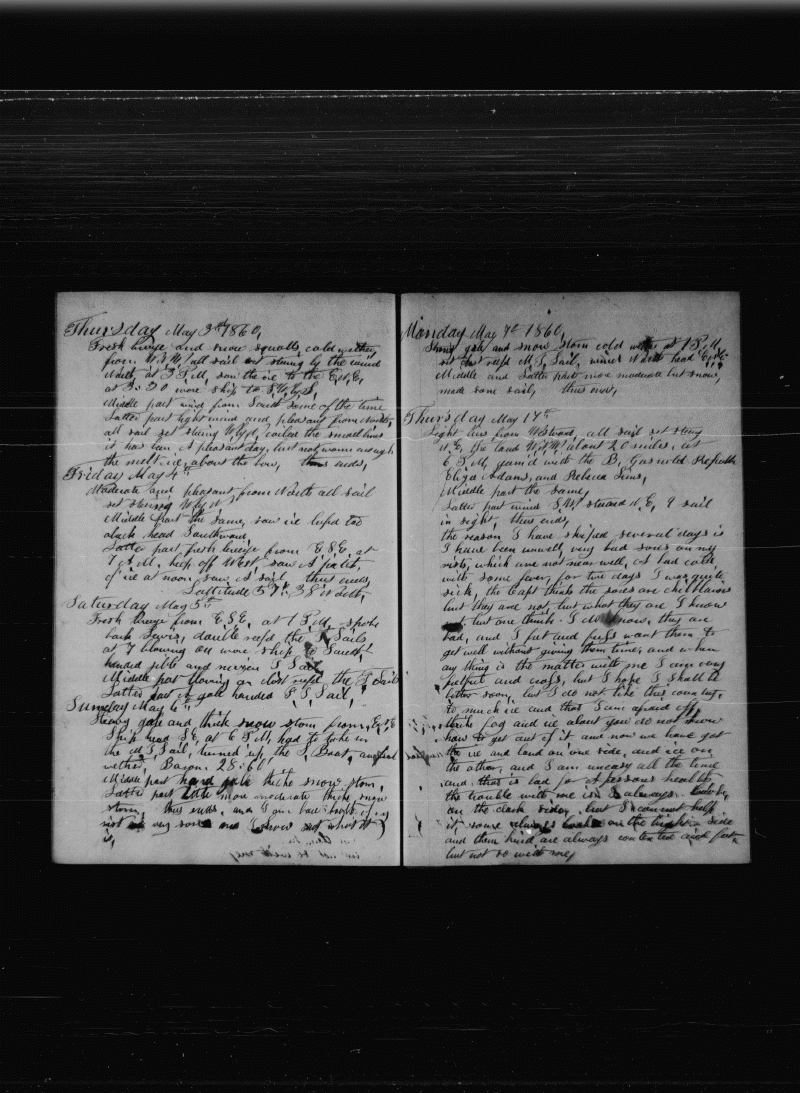 Thursday May 3d 1860,
Fresh breeze and snow squalls, cold weather,
from W.S.W. all sail set string by the wind
North, at 3 P.M. saw the ice to the E.N.E,
at 3:30 wore ship to S.
Middle part wind from South some of the time
Latter part light wind and pleasant from North,
all sail set coiled the small lines
it has been A pleasant day, but not warm enough
the melt ice about the bow, thus ends,
Friday May 4th
Moderate and pleasant from North all sail
set
Middle part the same, saw ice luffed too
aback head Southward,
Latter part fresh breeze from E.S.E, at
7 A.M. kept off West, saw A
of ice at noon, saw A sail thus ends,
Lattitude 57:38 North,
Saturday May 5th
Fresh breeze from E.S.E, at 1 P.M. spoke
bark double reefd the T Sails
at 7 blowing on wore ship to South
handed jibb and mizen T Sail
Middle part blowing on close reefd the T Sails
Latter part A gale handed F T Sail,
Sunday May 6th
Strong gale and thick snow storm from, E.S.E
Ship head S.E, at 6 P.M, had to take in
the M T Sail, turned up the S, Boat,
wether Barom 28:60
Middle part hard gale thicke snow storm,
Latter part little more moderate thicke snow
storm, thus ends, and I am
not very sore and I know not what it
is,
Monday May 7th 1860,
Strong gale and snow storm cold wether at 1 P.M,
set the reefd M T, Sail, wind North head
Middle and Latter part more moderate but snow,
made some sail, thus ends,
Thursday May 17th
Light airs from Westward, all sail set
N.E, the land W.S.W. about 20 miles, at
6 P.M, gam'd with the B, Gosnold
Eliza Adams, and Rebecca Sims,
Middle part the same,
Latter part wind S.W. steered N.E, 9 sail
in sight, thus ends,
the reason I have skiped several days is
I have been unwell, very bad sores on my
rists, which are not near well, A bad cold
with some fever, for two days I was quite
sick, the Capt thinks the sores are chilblains
but they are not, but what they are I know
not, but one thing I do know, they are
bad, and I fret and fuss want them to
get well without giving them time, and when
any thing is the matter with me I am very
fretful and cross, but I hope I shall be
better soon, but I do not like this country,
to much ice and that I am afraid off,
thick fog and ice about you do not know
how to get out of it and now we have got
the ice and land on one side, and ice on
the other, and I am uneasy all the time
and that is bad for A persons health
the trouble with me is I always look
on the dark side, but I cannot help
it, some always look on the bright side
and them kind are always contented and
but not so with me,